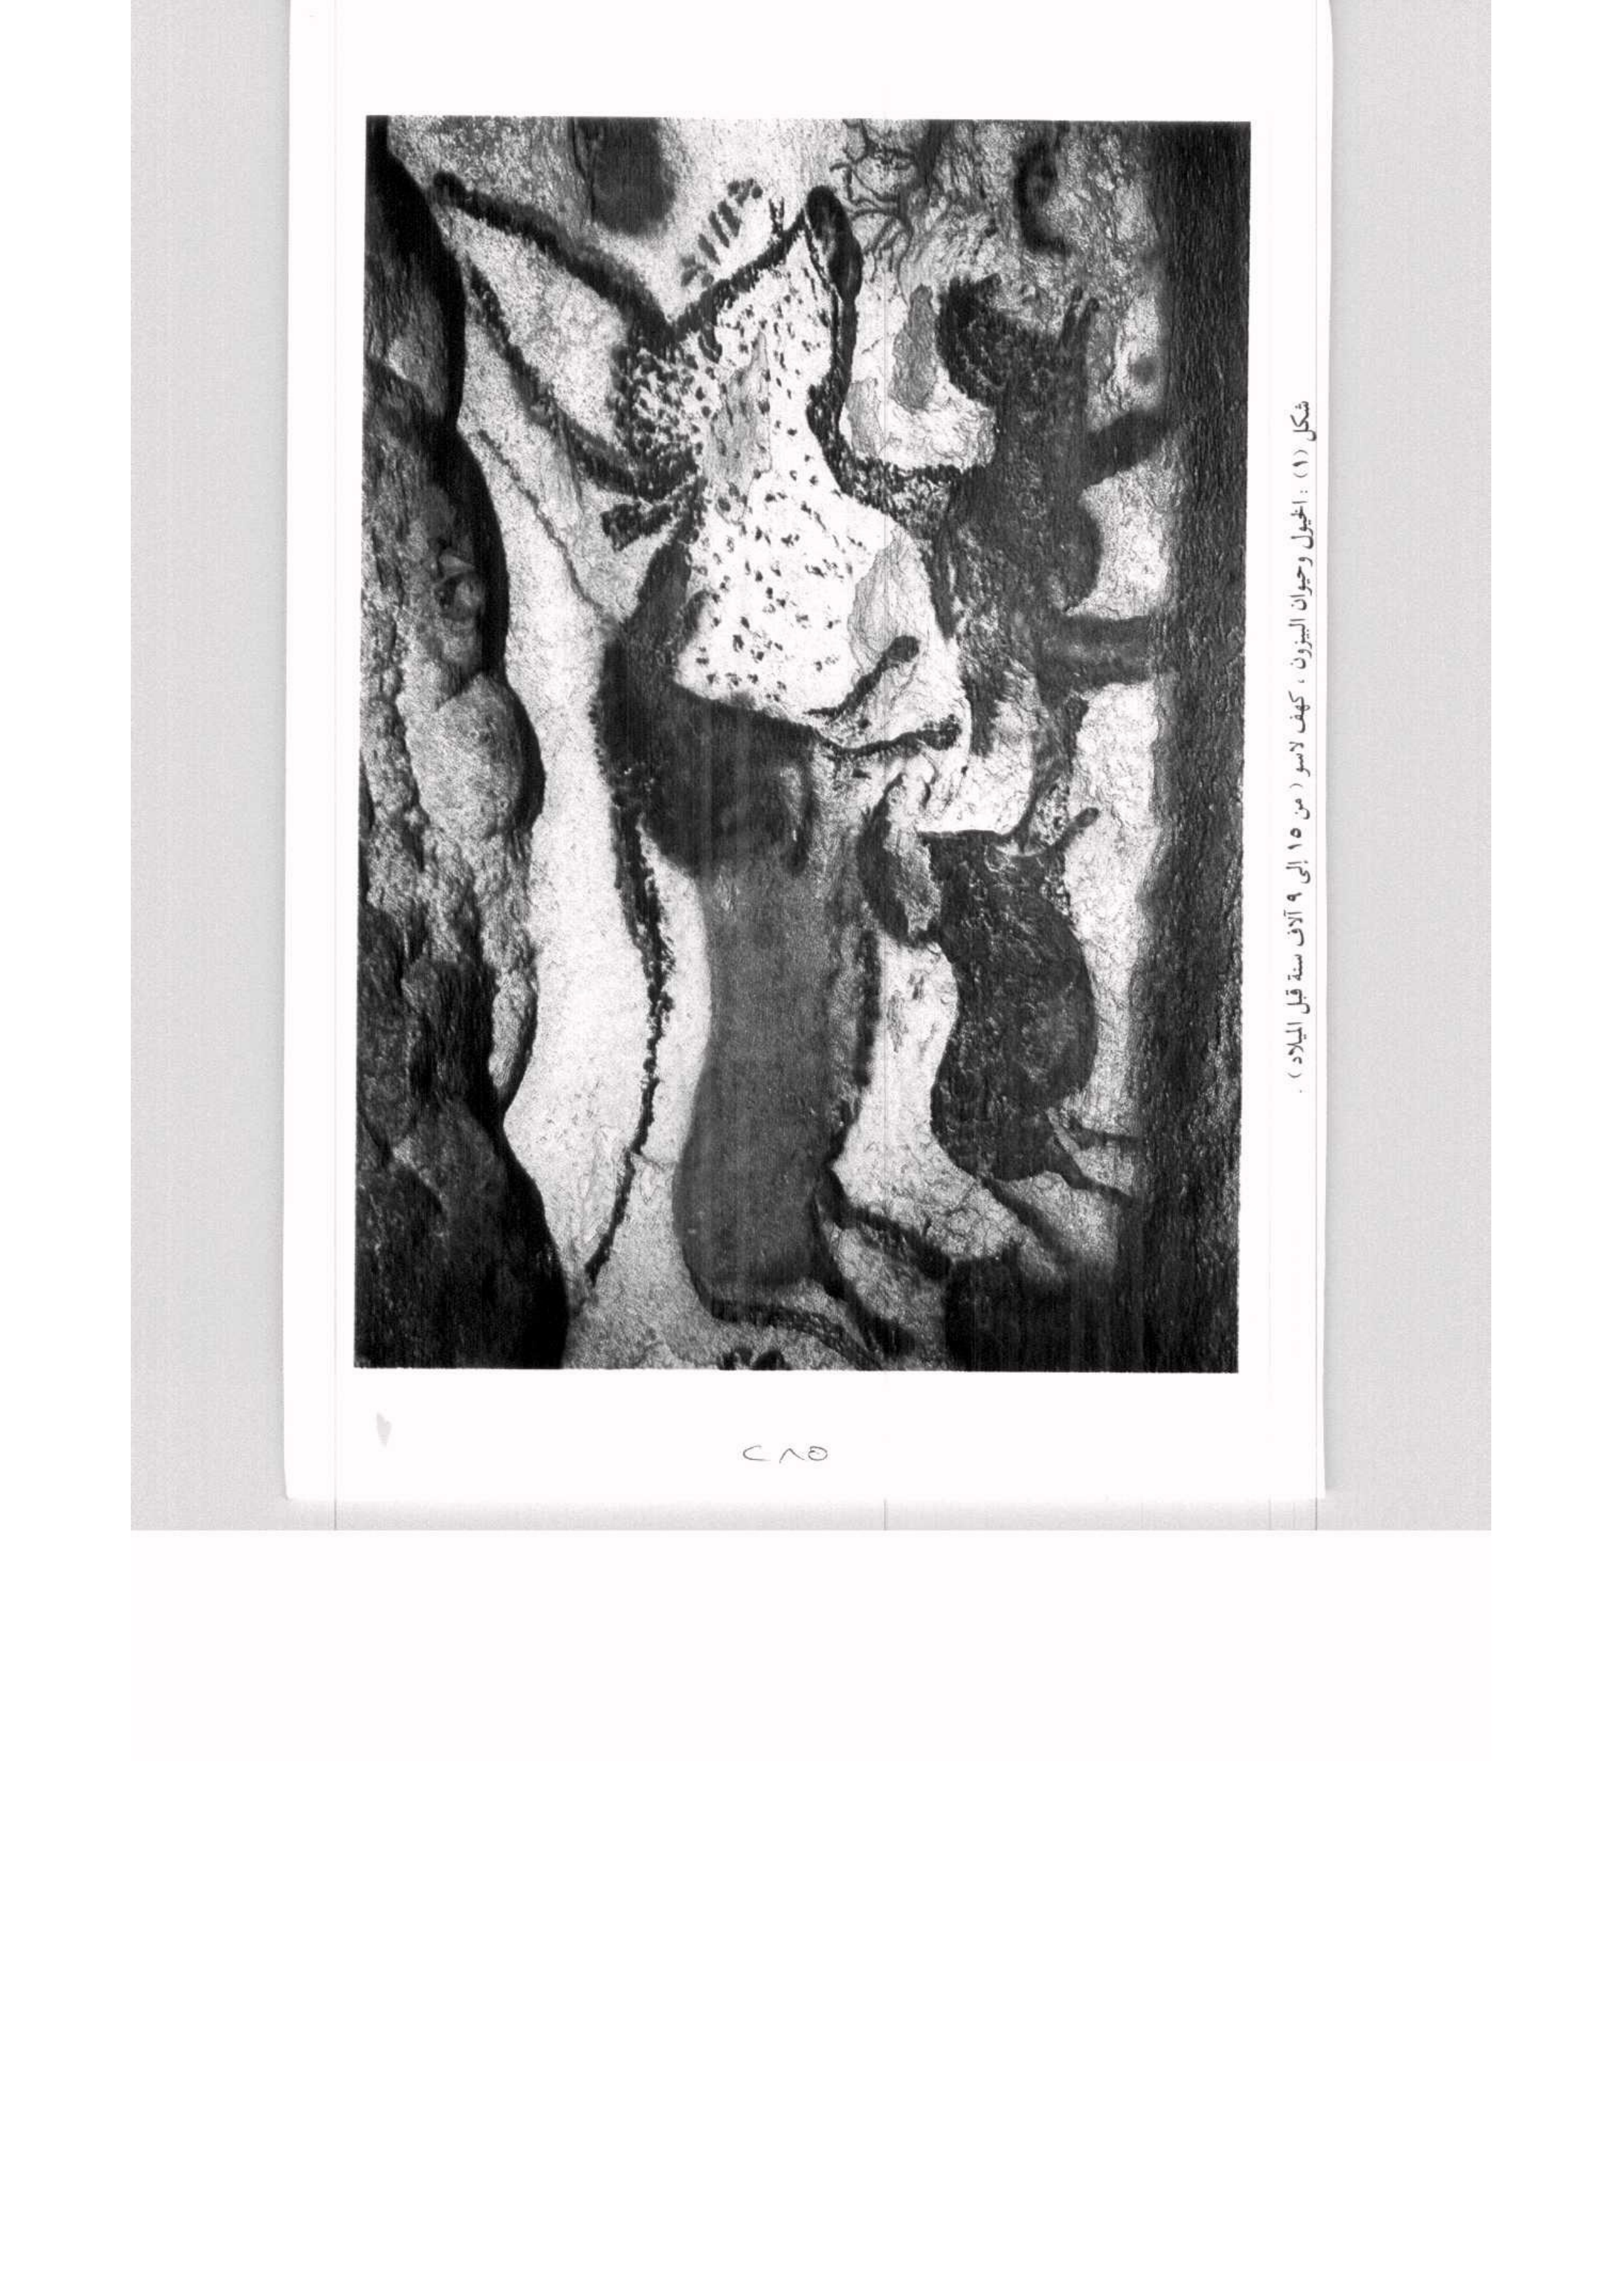 شكل (١) : الخيول وحيوان البيزون ، كهف لاسو ( من ١٥ إلى ٩ آلاف سنة قبل الميلاد ) .
٢٨٥